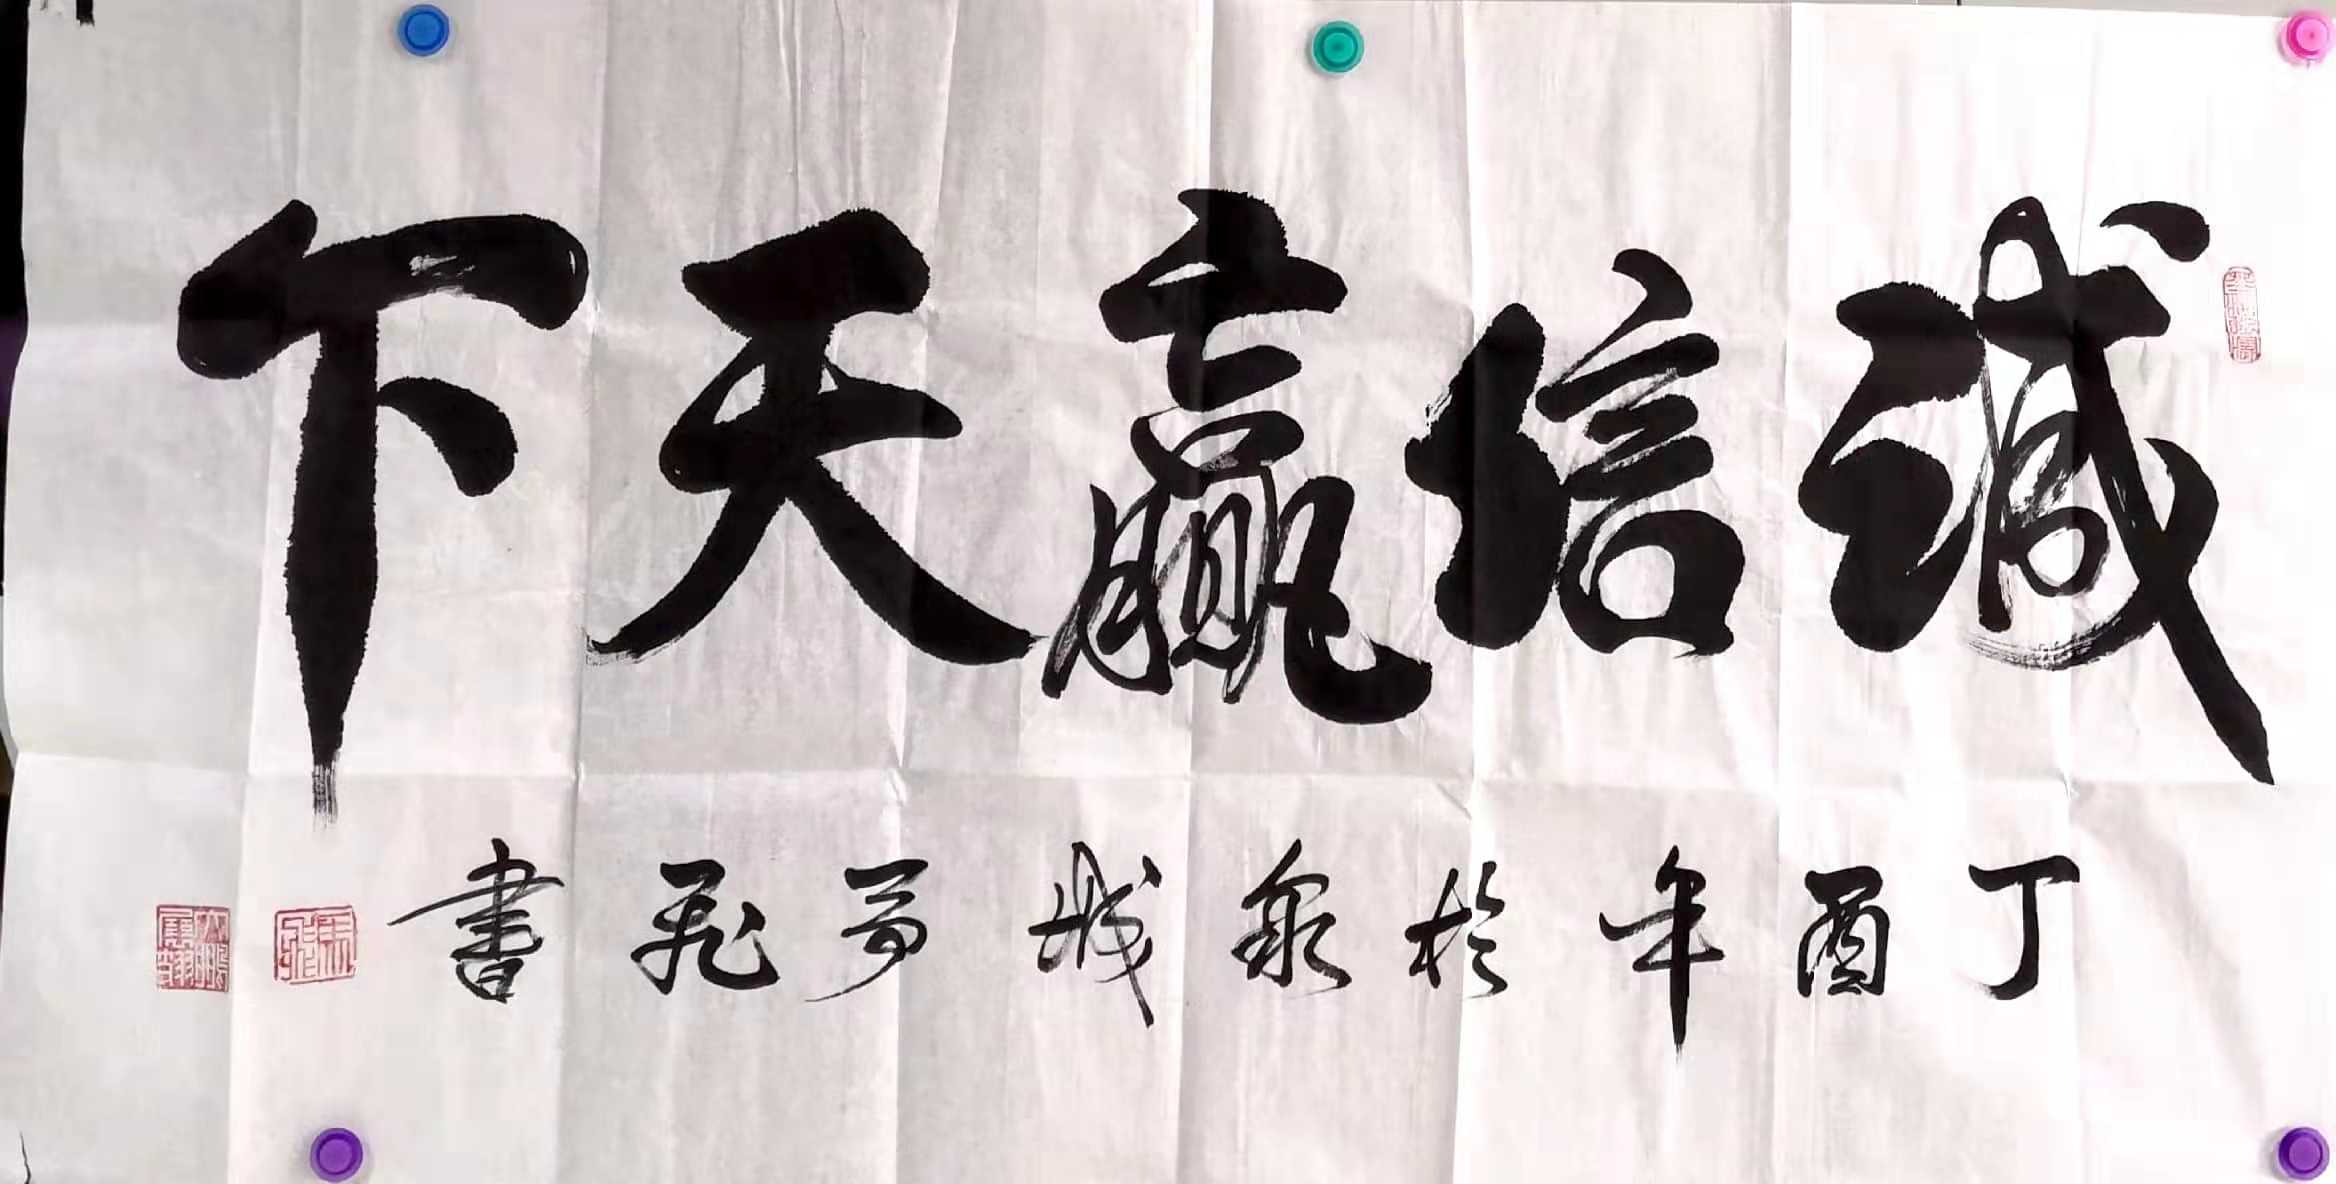 誠信贏天下
丁酉年於泉城馬飛書